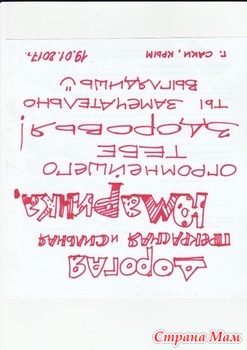 ДОРОГАЯ
ПРЕКРАСНАЯ И СИЛЬНАЯ
ЮМаРИЧКА,
ОГРОМНЕЙШЕГО
ТЕБЕ
ЗДОРОВЬЯ!
ТЫ ЗАМЕЧАТЕЛЬНО
ВЫГЛЯДИШЬ
г. САКИ, КРЫМ 19.01.2017г.
Страна Мам